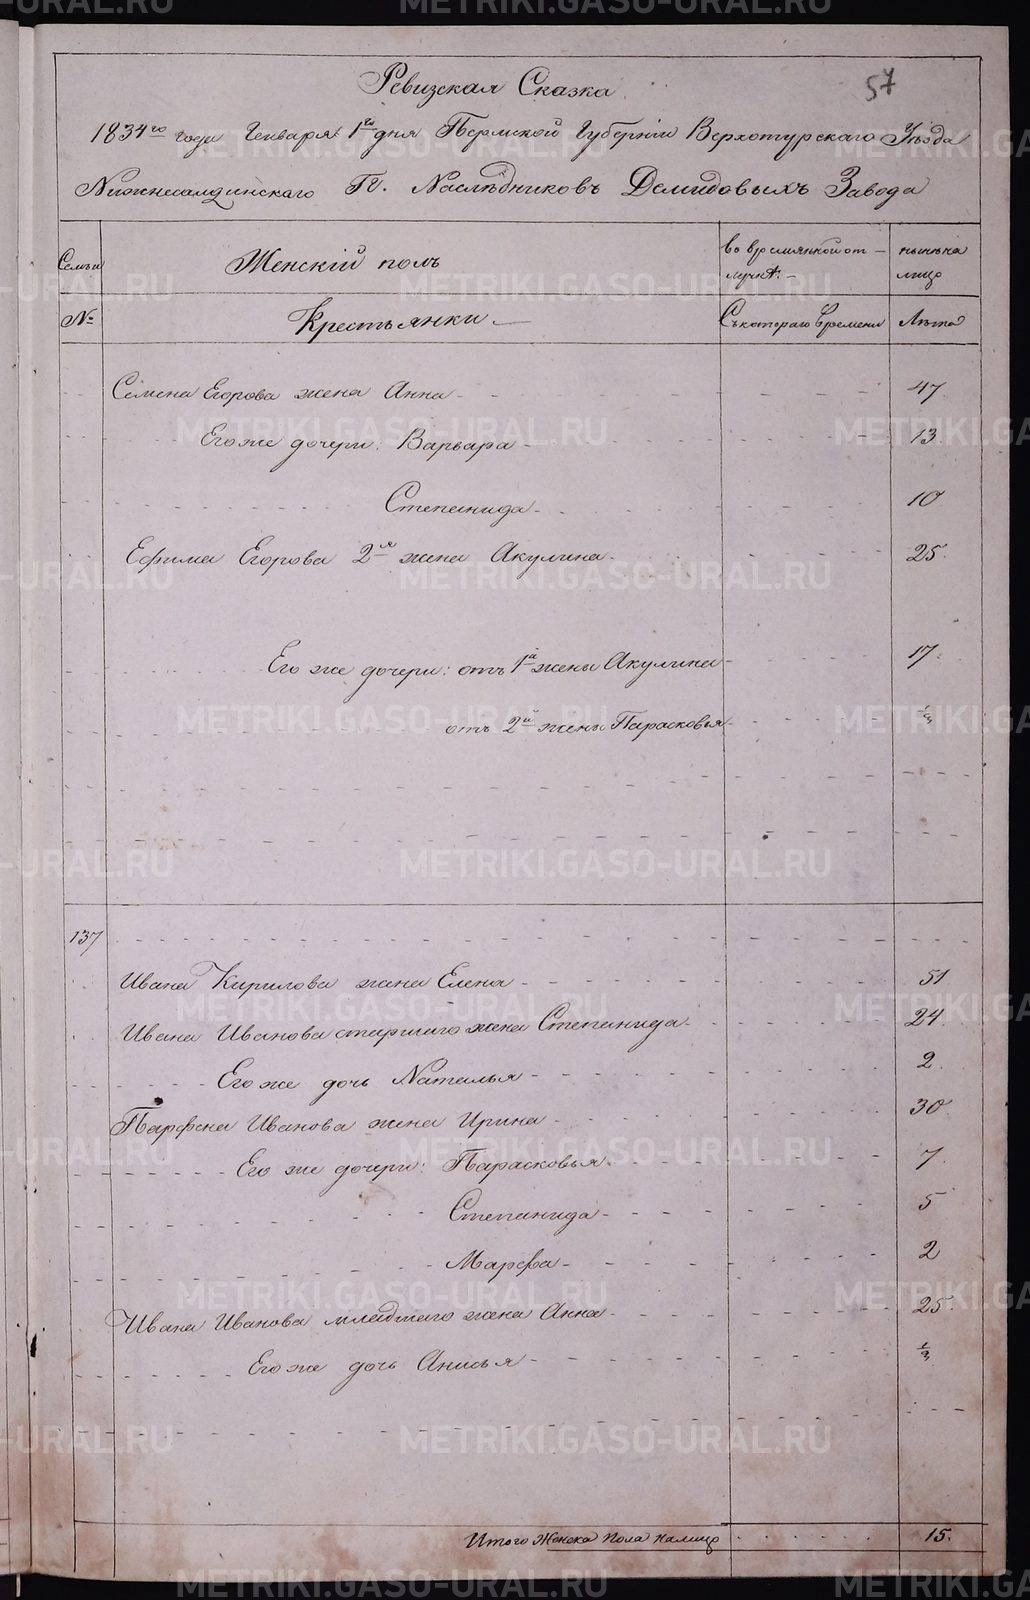 Ревизская Сказка
57
1834го года Генваря 1го дня Пермской Губернии Верхотурскаго Уѣзда
Нижнесалдинскаго Гг. Наслѣдниковъ Демидовыхъ Завода
Семьи
Женскій полъ
во времянной от-
лучкѣ.-
нынѣ на
лицо
№
Крестьянки
Съ котораго времени
Лѣта
Семена Егорова жена Анна 47
Его же дочери: Варвара 13
Степанида 10
Ефима Егорова 2я жена Акулина 25.
Его же дочери: отъ 1й жены Акулина 17.
отъ 2й жены Парасковья
137
Ивана Кирилова жена Елена 51
Ивана Иванова старшаго жена Степанида 24.
Его же дочь Наталья 2.
Парфена Иванова жена Ирина 30
Его же дочери: Парасковья 7
Степанида 5
Марфа 2
Ивана Иванова младшаго жена Анна 25.
Его же дочь Анисья
Итого Женска Пола налицо 15.
METRIKI.GASO-URAL.RU